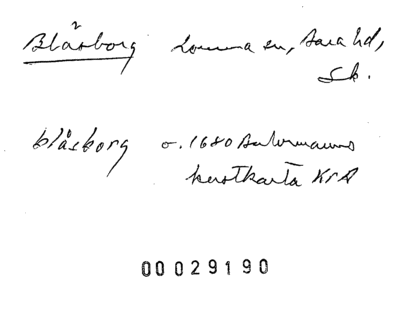 Blåsborg Lomma sn, Bara hd,
Sk.
blåsborg o. 1680 Buhrmanns
kustkarta KrA
00029190